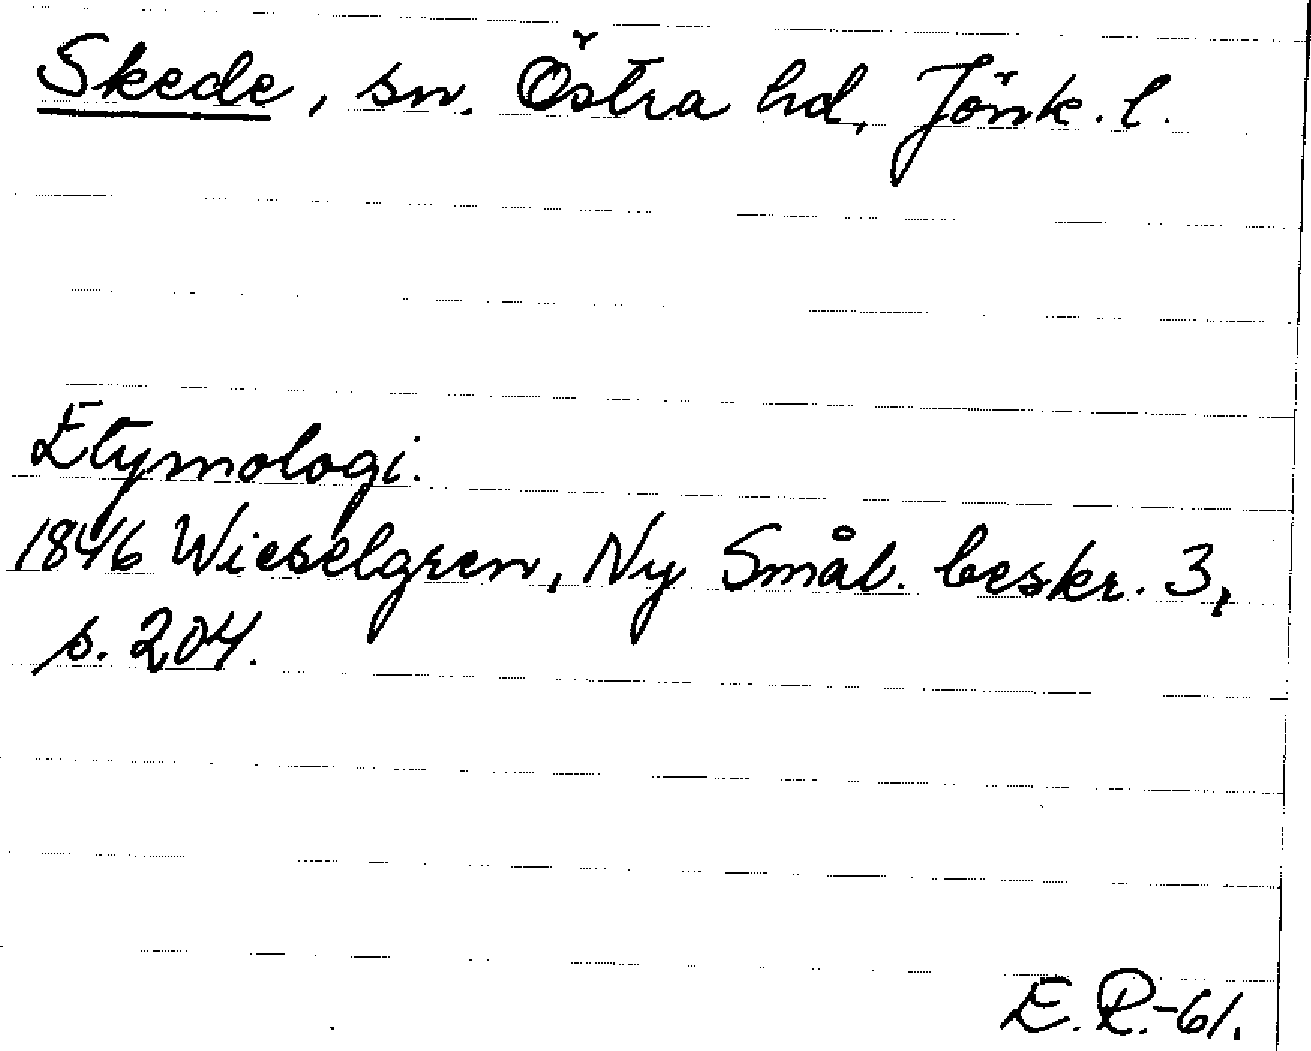 Skede, sn. Östra hd, Jönk. l.
Etymologi.
1846 Wieselgren, Ny Smål. beskr. 3,
s. 204.
E. R.-61.